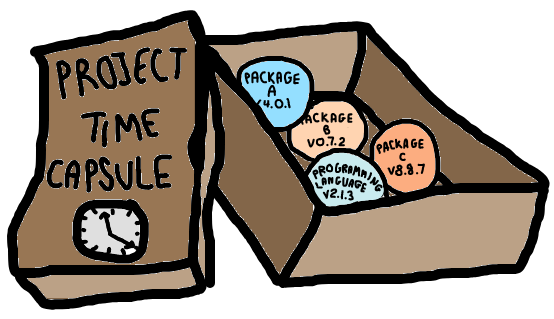 PROJECT
TIME
CAPSULE
PACKAGE
A
V4.0.1
PACKAGE
B
V0.7.2
PACKAGE
C
V8.8.7
PROGRAMMING
LANGUAGE
V2.1.3